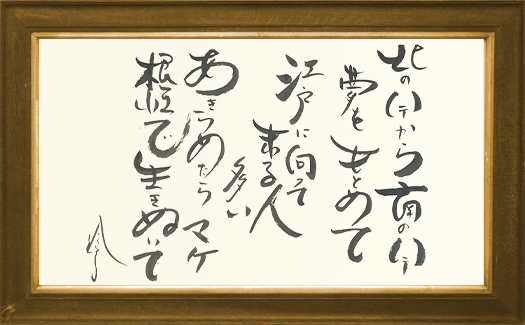 北のハテから南のハテ
夢をもとめて
江戸に向って
来る人
多い
あきらめたらマケ
根性で生きぬいて